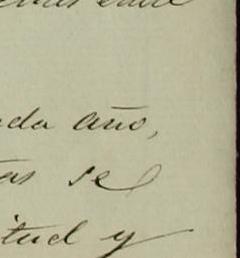 ada año,
as se
itud y